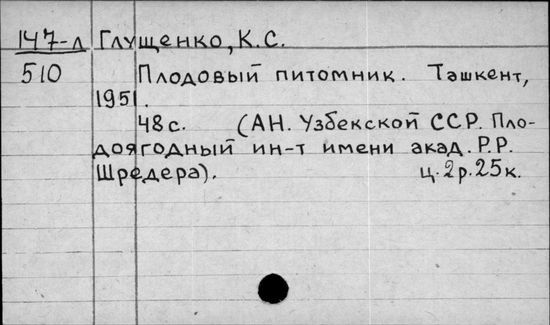 147-л Глущенко, К.С.
510 Плодовый питомник. Ташкент,
1951.
48 с. (АН. Узбекской ССР. Пло-
доягодный ин-т имени акад. Р.Р.
Шредера). ц. 2 р. 25 к.